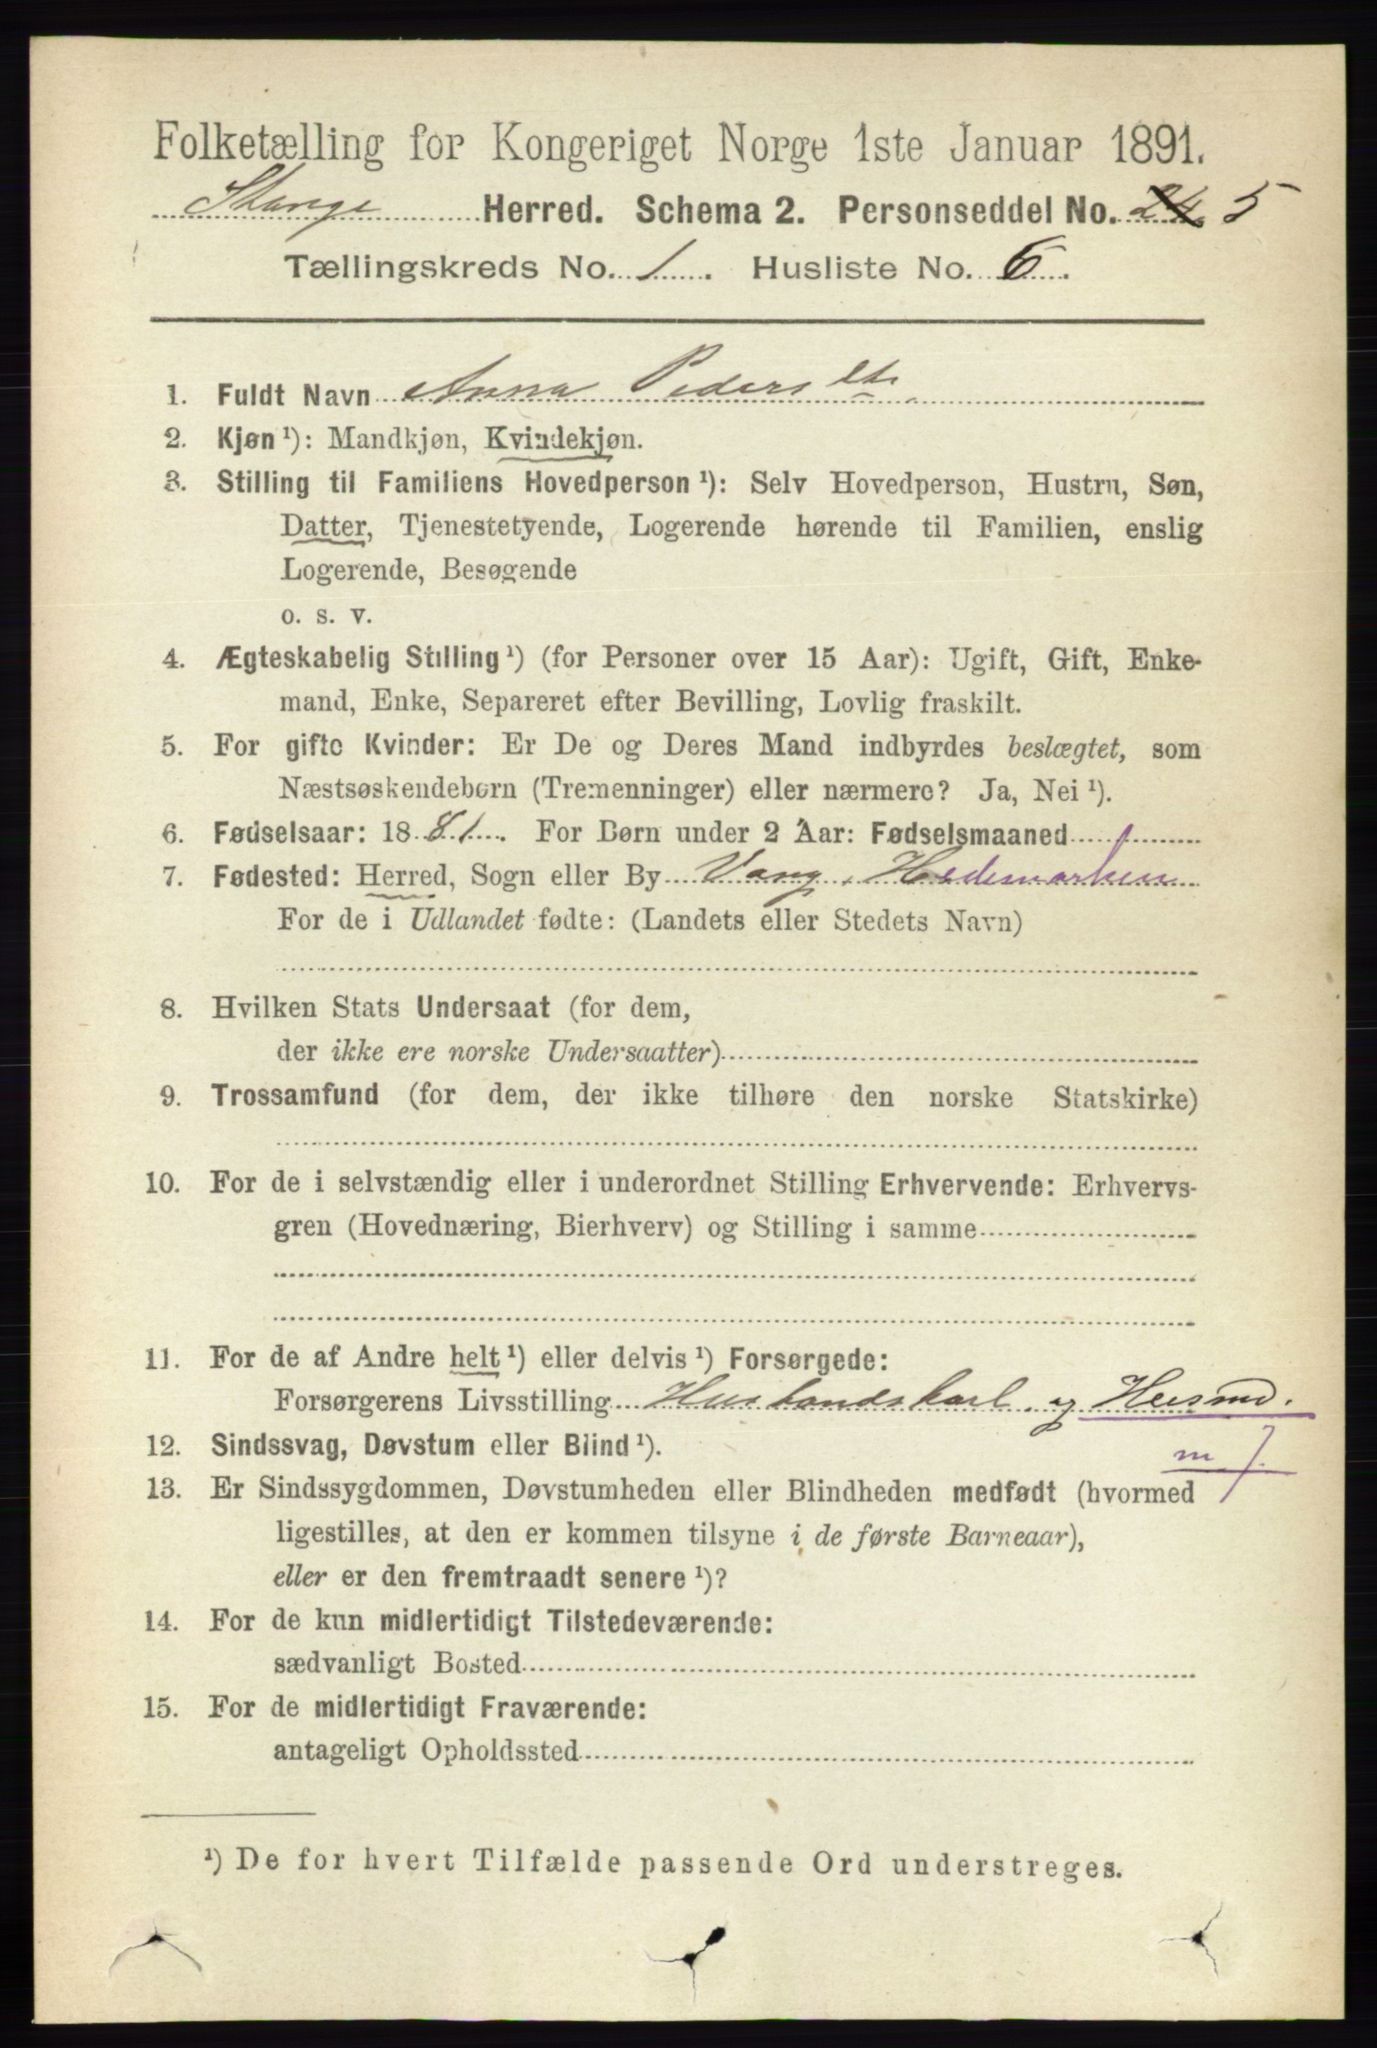 Folketælling for Kongeriget Norge 1ste Januar 1891.
Stange Herred. Schema 2. Personseddel No. 24 5
Tællingskreds No. 1. Husliste No. 6.
1. Fuldt Navn Anna Pedersdtr.
2. Kjøn ¹): Mandkjøn, Kvindekjøn.
3. Stilling til Familiens Hovedperson ¹): Selv Hovedperson, Hustru, Søn,
Datter, Tjenestetyende, Logerende hørende til Familien, enslig
Logerende, Besøgende
o. s. v.
4. Ægteskabelig Stilling ¹) (for Personer over 15 Aar): Ugift, Gift, Enke-
mand, Enke, Separeret efter Bevilling, Lovlig fraskilt.
5. For gifte Kvinder: Er De og Deres Mand indbyrdes beslægtet, som
Næstsøskendebørn (Tremenninger) eller nærmere? Ja, Nei ¹).
6. Fødselsaar: 1881. For Børn under 2 Aar: Fødselsmaaned
7. Fødested: Herred, Sogn eller By Vang, Hedemarken
For de i Udlandet fødte: (Landets eller Stedets Navn)
8. Hvilken Stats Undersaat (for dem,
der ikke ere norske Undersaatter)
9. Trossamfund (for dem, der ikke tilhøre den norske Statskirke)
10. For de i selvstændig eller i underordnet Stilling Erhvervende: Erhvervs-
gren (Hovednæring, Bierhverv) og Stilling i samme
11. For de af Andre helt ¹) eller delvis ¹) Forsørgede:
Forsørgerens Livsstilling Husbondskarl og Husmd.
m J.
12. Sindssvag, Døvstum eller Blind ¹).
13. Er Sindssygdommen, Døvstumheden eller Blindheden medfødt (hvormed
ligestilles, at den er kommen tilsyne i de første Barneaar),
eller er den fremtraadt senere ¹)?
14. For de kun midlertidigt Tilstedeværende:
sædvanligt Bosted
15. For de midlertidigt Fraværende:
antageligt Opholdssted
¹) De for hvert Tilfælde passende Ord understreges.